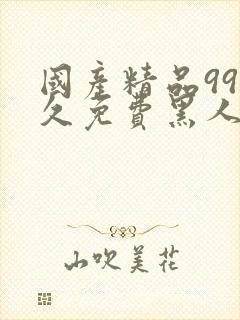 國產精品99
久免費黑人
山吹美花